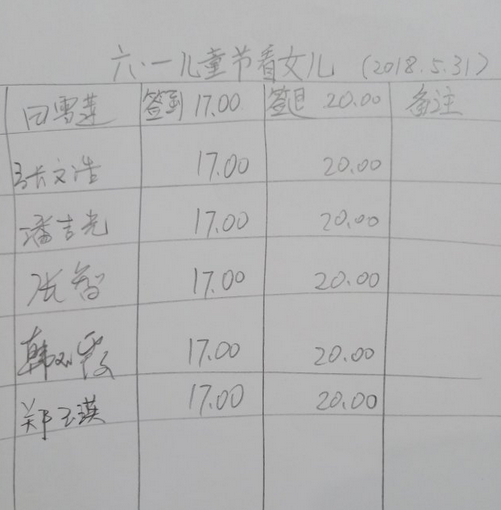 六·一儿童节看女儿 (2018.5.31)
田雪莲 签到 17.00 签退 20.00 备注
张文浩 17.00 20.00
潘吉光 17.00 20.00
张智 17.00 20.00
韩 霞 17.00 20.00
郑玉瑛 17.00 20.00